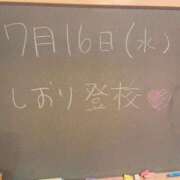 7月16日(水)
しおり登校♥